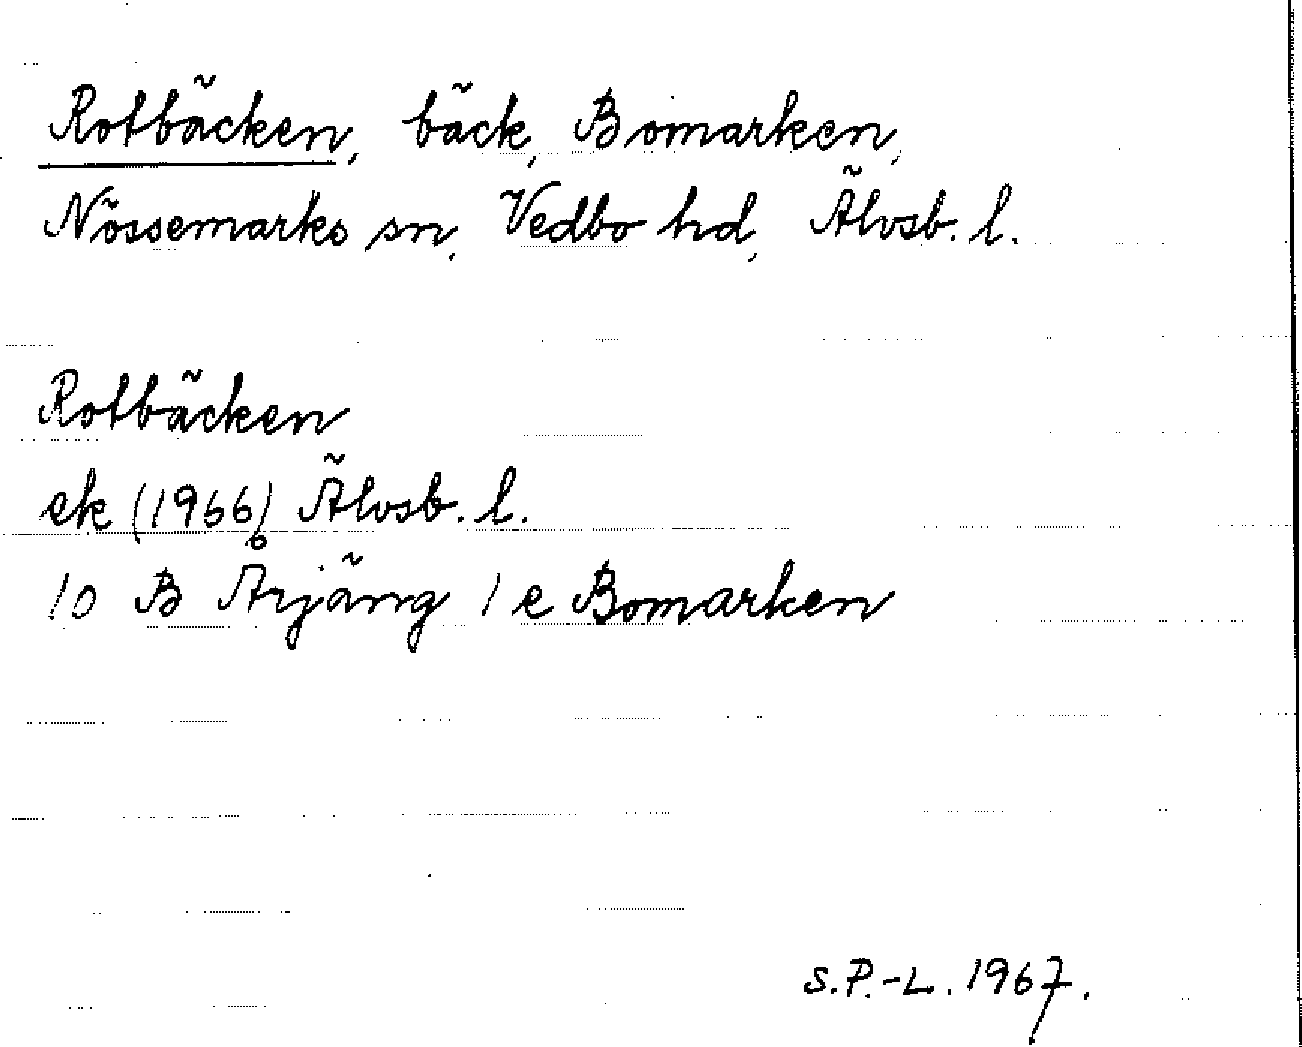 Rotbäcken, bäck, Bomarken,
Nössemarks sn, Vedbo hd, Älvsb. l.
Rotbäcken
ek (1966) Älvsb. l.
10 B Årjäng 1 e Bomarken
S.P.-L. 1967.